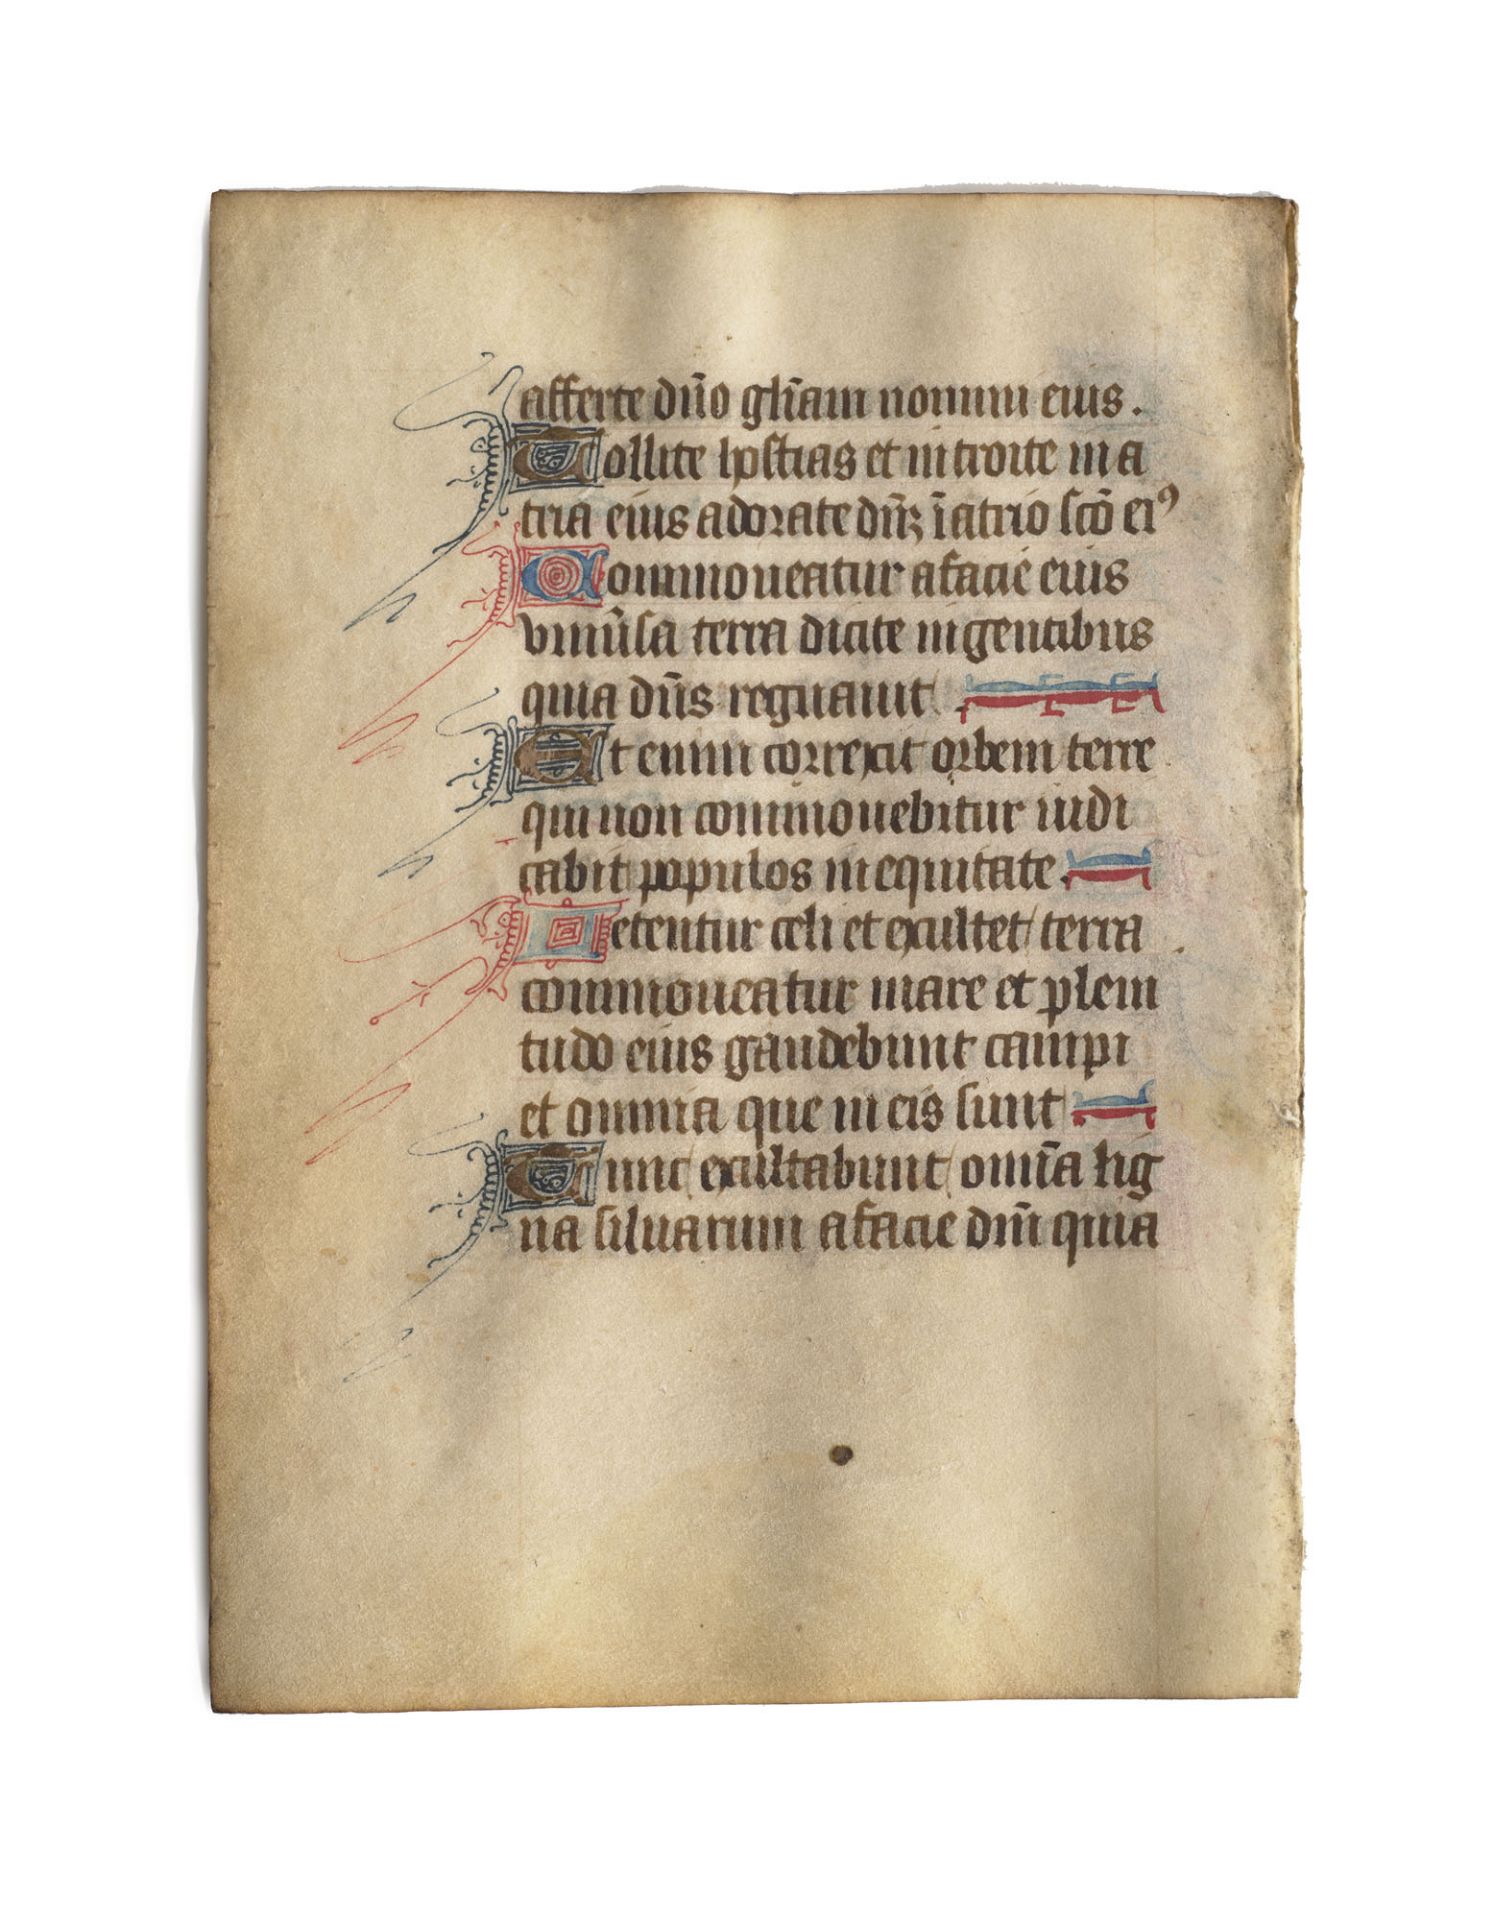 afferte dn̄o gl̄iam nomini eius.
Tollite hostias et introite in a
tria eius adorate dn̄ꝫ ī atrio scō eiꝰ
Commoueatur a facie eius
vniūsa terra dicite in gentibus
quia dn̄s regnauit.
Et enim correxit orbem terre
qui non commouebitur iudi
cabit populos in equitate.
Letentur celi et exultet terra
commoueatur mare et pleni
tudo eius gaudebunt campi
et omnia que in eis sunt
Tunc exultabunt omīa lig
na siluarum a facie dnī quia